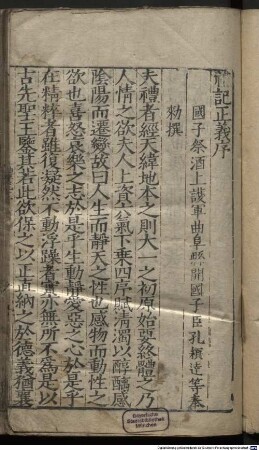 禮記正義序
國子祭酒上護軍曲阜縣開國子臣孔穎達等奉
勑撰
夫禮者經天緯地本之則大一之初原始要終體之乃
人情之欲夫人上資六氣下乘四序賦清濁以醇醨感
陰陽而遷變故曰人生而靜天之性也感物而動性之
欲也喜怒哀樂之志於是乎生動靜愛惡之心於是乎
在精粹者雖復凝然不動浮躁者實亦無所不爲是以
古先聖王鑒其若此欲保之以正直納之於德義猶襄